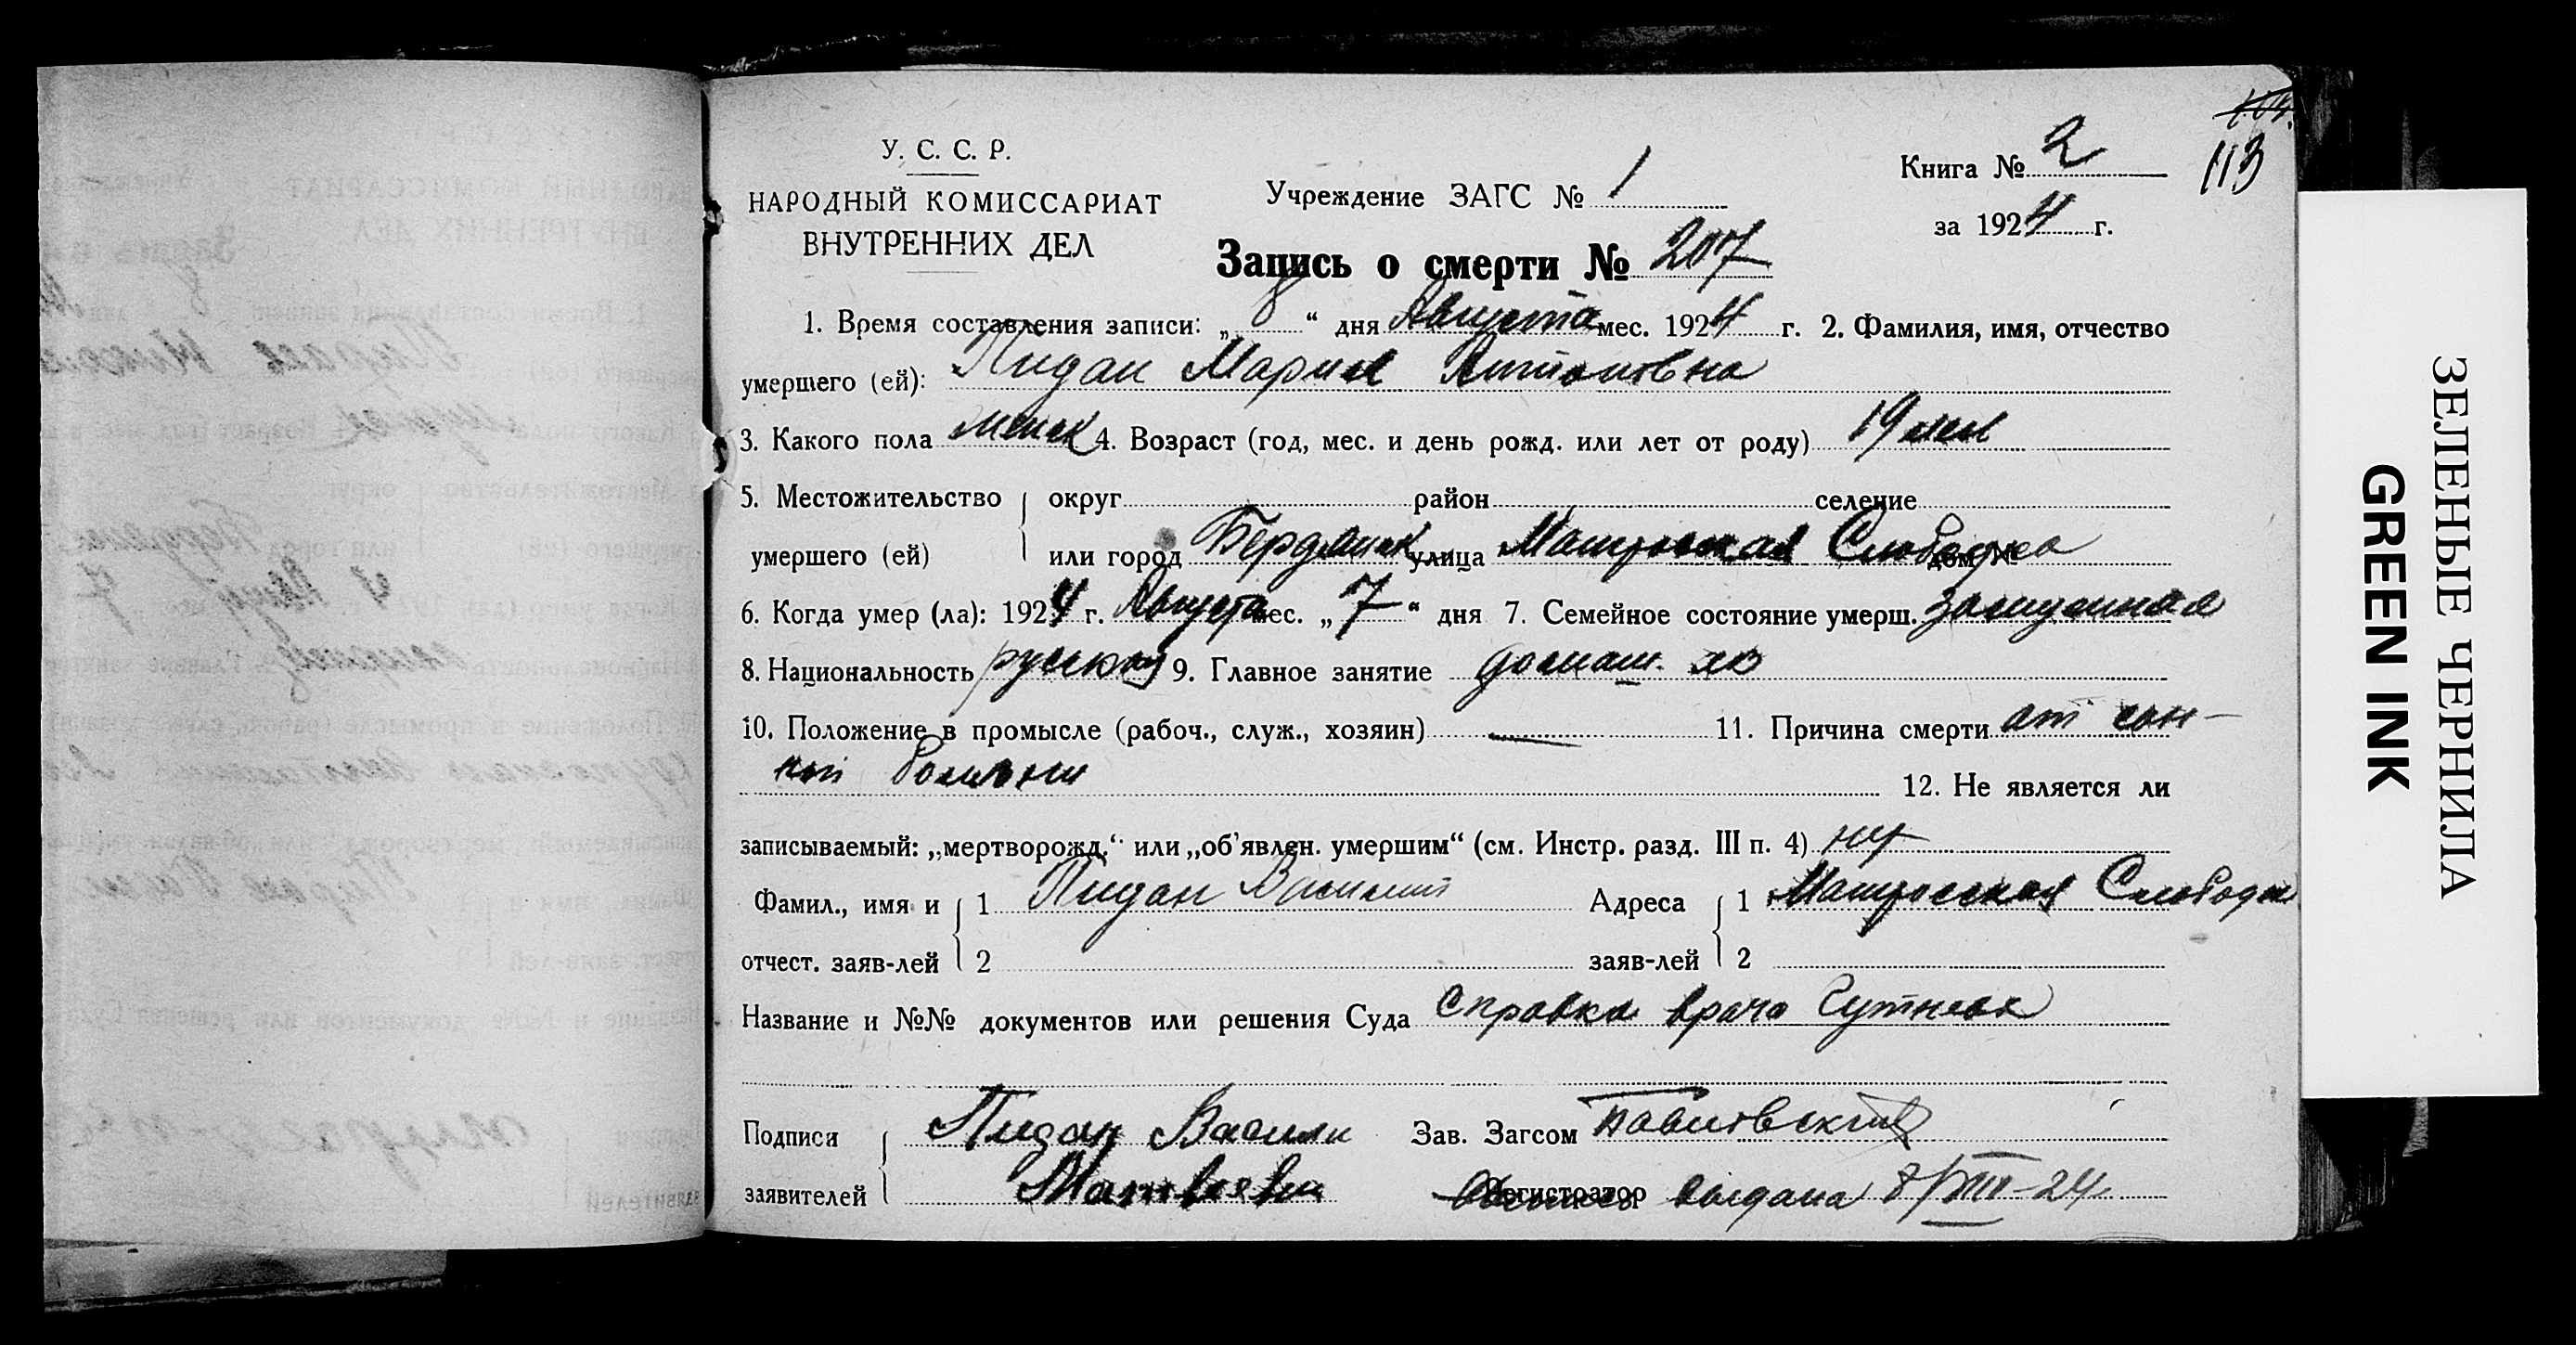 113
У. С. С. Р.
НАРОДНЫЙ КОМИССАРИАТ
ВНУТРЕННИХ ДЕЛ
Учреждение ЗАГС № 1
Книга № 2
за 1924 г.
Запись о смерти № 207
1. Время составления записи: „8“ дня Августа мес. 1924 г. 2. Фамилия, имя, отчество
умершего (ей): Пидан Мария Антоновна
3. Какого пола женск 4. Возраст (год, мес. и день рожд. или лет от роду) 19 лет
5. Местожительство округ район селение
умершего (ей) или город Бердянск улица Матросская Слободка дом №
6. Когда умер (ла): 1924 г. Августа мес. „7“ дня 7. Семейное состояние умерш. замужняя
8. Национальность русская 9. Главное занятие домаш. хоз
10. Положение в промысле (рабоч., служ., хозяин) — 11. Причина смерти от сон-
ной болезни
12. Не является ли
записываемый: „мертворожд.“ или „об'явлен. умершим“ (см. Инстр. разд. III п. 4) нет
Фамил., имя и 1 Пидан Василий Адреса 1 Матросская Слободка
отчест. заяв-лей 2 заяв-лей 2
Название и №№ документов или решения Суда Справка врача
Подписи Пидан Васили Зав. Загсом
заявителей Регистратор выдана 8/VIII-24
ЗЕЛЕНЫЕ ЧЕРНИЛА
GREEN INK